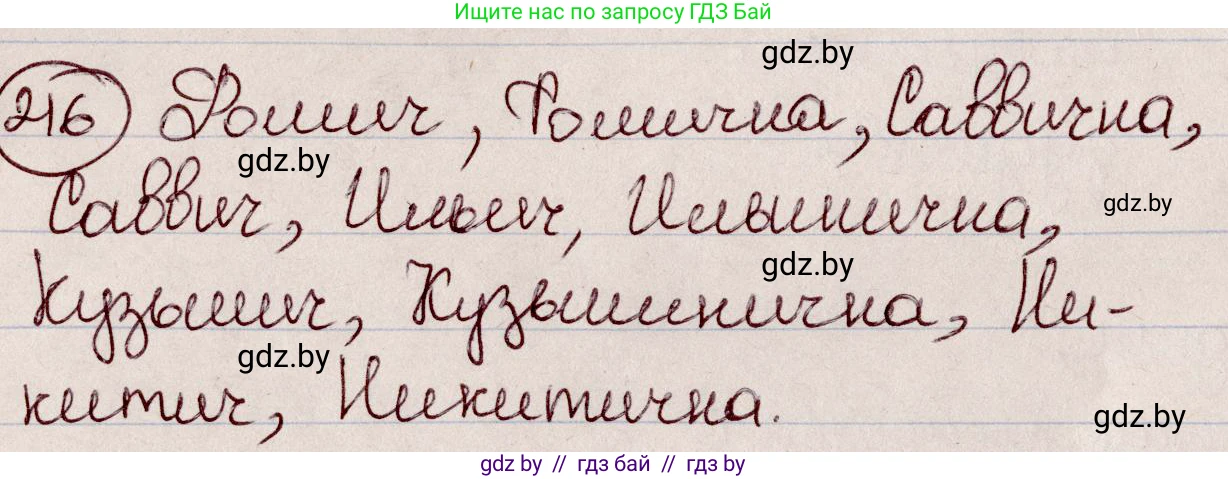 Ищите нас по запросу ГДЗ Бай
gdz.by
216 Фомич, Фоминична, Саввична,
gdz.by
Саввич, Ильич, Ильинична,
gdz.by
gdz.by
Кузьмич, Кузьминична, Ни-
gdz.by
китич, Никитична.
gdz.by
gdz.by // гдз бай // gdz.by